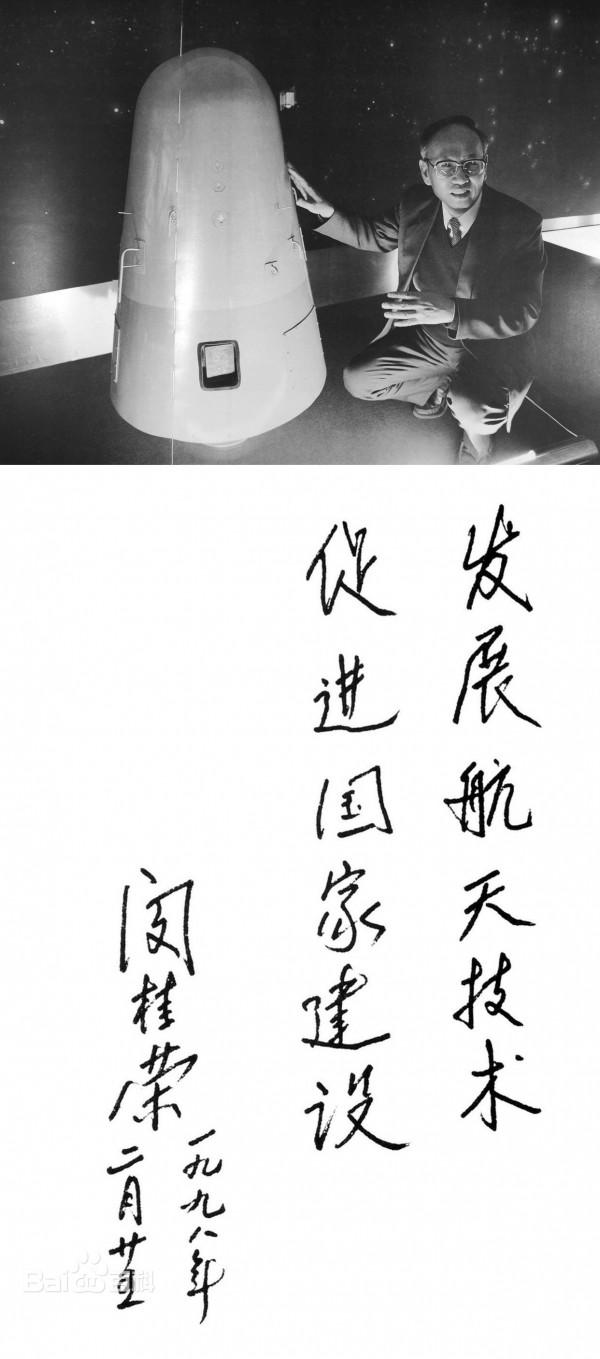 发展航天技术
促进国家建设
闵桂荣
一九九八年
二月廿五
Bai百科